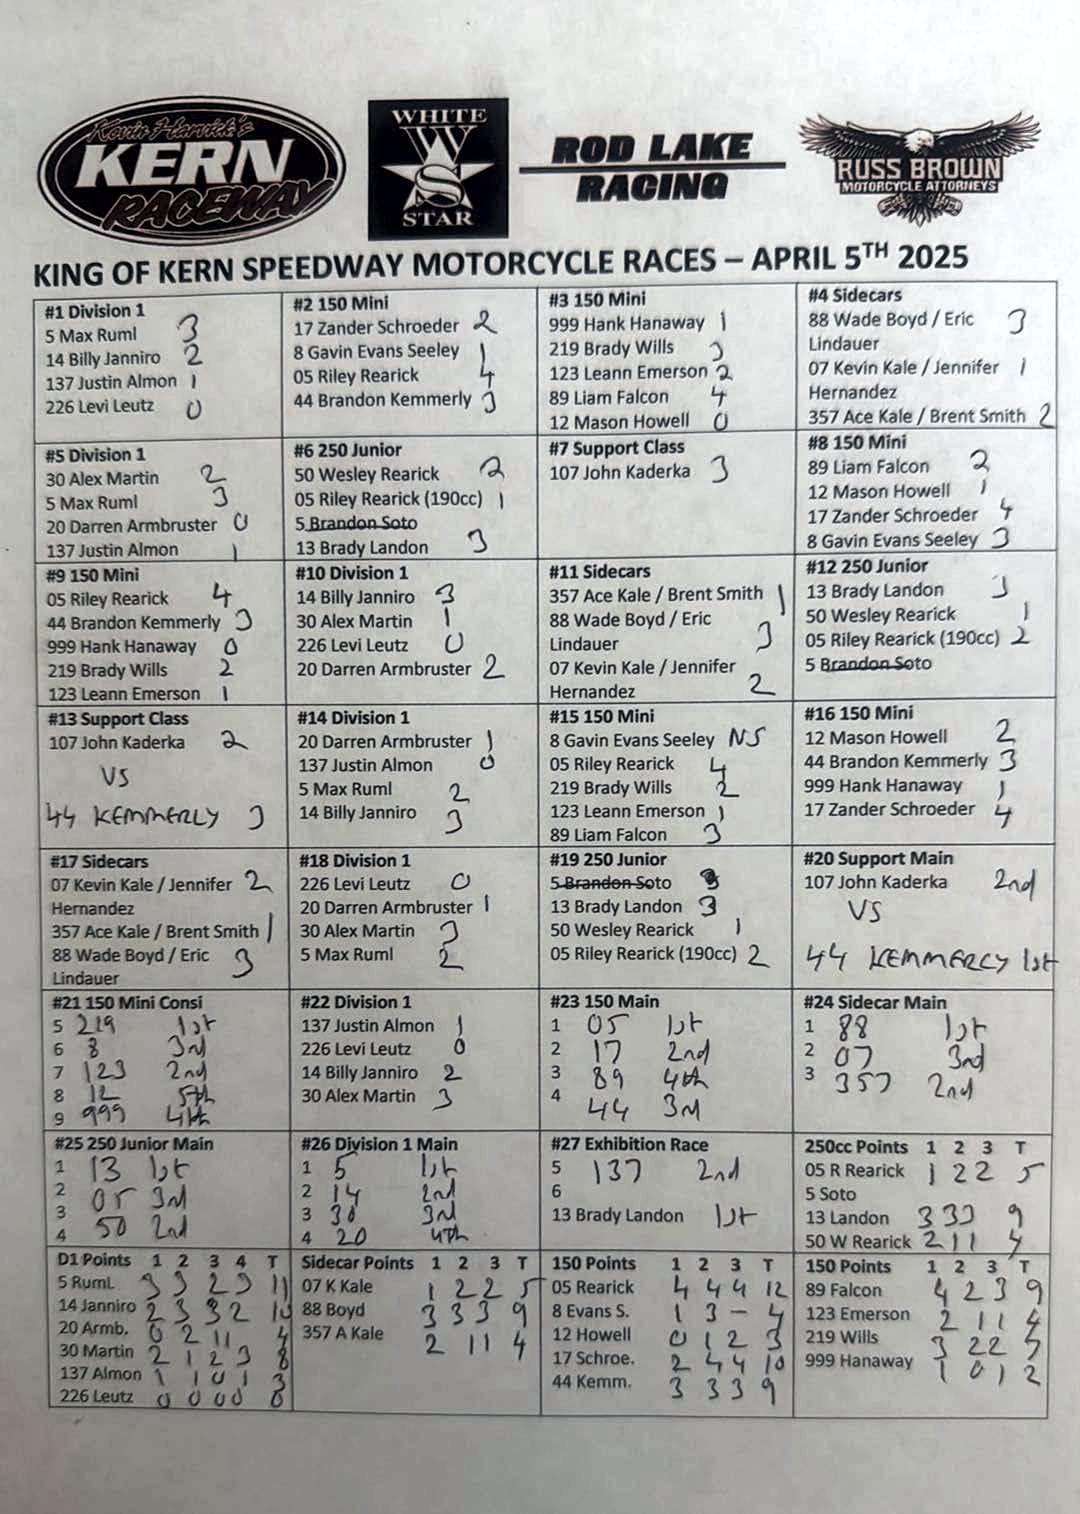 Kevin Harvick's
KERN
RACEWAY
WHITE
W
S
STAR
ROD LAKE
RACING
RUSS BROWN
MOTORCYCLE ATTORNEYS
KING OF KERN SPEEDWAY MOTORCYCLE RACES – APRIL 5TH 2025
#1 Division 1
5 Max Ruml 3
14 Billy Janniro 2
137 Justin Almon 1
226 Levi Leutz 0
#2 150 Mini
17 Zander Schroeder 2
8 Gavin Evans Seeley 1
05 Riley Rearick 4
44 Brandon Kemmerly 3
#3 150 Mini
999 Hank Hanaway 1
219 Brady Wills 3
123 Leann Emerson 2
89 Liam Falcon 4
12 Mason Howell 0
#4 Sidecars
88 Wade Boyd / Eric 3
Lindauer
07 Kevin Kale / Jennifer 1
Hernandez
357 Ace Kale / Brent Smith 2
#5 Division 1
30 Alex Martin 2
5 Max Ruml 3
20 Darren Armbruster 0
137 Justin Almon 1
#6 250 Junior
50 Wesley Rearick 2
05 Riley Rearick (190cc) 1
5 Brandon Soto
13 Brady Landon 3
#7 Support Class
107 John Kaderka 3
#8 150 Mini
89 Liam Falcon 2
12 Mason Howell 1
17 Zander Schroeder 4
8 Gavin Evans Seeley 3
#9 150 Mini
05 Riley Rearick 4
44 Brandon Kemmerly 3
999 Hank Hanaway 0
219 Brady Wills 2
123 Leann Emerson 1
#10 Division 1
14 Billy Janniro 3
30 Alex Martin 1
226 Levi Leutz 0
20 Darren Armbruster 2
#11 Sidecars
357 Ace Kale / Brent Smith 1
88 Wade Boyd / Eric
Lindauer 3
07 Kevin Kale / Jennifer
Hernandez 2
#12 250 Junior
13 Brady Landon 3
50 Wesley Rearick 1
05 Riley Rearick (190cc) 2
5 Brandon Soto
#13 Support Class
107 John Kaderka 2
VS
44 KEMMERLY 3
#14 Division 1
20 Darren Armbruster 1
137 Justin Almon 0
5 Max Ruml 2
14 Billy Janniro 3
#15 150 Mini
8 Gavin Evans Seeley NS
05 Riley Rearick 4
219 Brady Wills 2
123 Leann Emerson 1
89 Liam Falcon 3
#16 150 Mini
12 Mason Howell 2
44 Brandon Kemmerly 3
999 Hank Hanaway 1
17 Zander Schroeder 4
#17 Sidecars
07 Kevin Kale / Jennifer 2
Hernandez
357 Ace Kale / Brent Smith 1
88 Wade Boyd / Eric 3
Lindauer
#18 Division 1
226 Levi Leutz 0
20 Darren Armbruster 1
30 Alex Martin 3
5 Max Ruml 2
#19 250 Junior
5 Brandon Soto
13 Brady Landon 3
50 Wesley Rearick 1
05 Riley Rearick (190cc) 2
#20 Support Main
107 John Kaderka 2nd
VS
44 KEMMERLY 1st
#21 150 Mini Consi
5 219 1st
6 8 3rd
7 123 2nd
8 12 5th
9 999 4th
#22 Division 1
137 Justin Almon 1
226 Levi Leutz 0
14 Billy Janniro 2
30 Alex Martin 3
#23 150 Main
1 05 1st
2 17 2nd
3 89 4th
4 44 3rd
#24 Sidecar Main
1 88 1st
2 07 3rd
3 357 2nd
#25 250 Junior Main
1 13 1st
2 05 3rd
3
4 50 2nd
#26 Division 1 Main
1 5 1st
2 14 2nd
3 30 3rd
4 20 4th
#27 Exhibition Race
5 137 2nd
6
13 Brady Landon 1st
250cc Points 1 2 3 T
05 R Rearick 1 2 2 5
5 Soto
13 Landon 3 3 3 9
50 W Rearick 2 1 1 4
D1 Points 1 2 3 4 T
5 Ruml 3 3 2 3 11
14 Janniro 2 3 3 2 10
20 Armb. 0 2 1 1 4
30 Martin 2 1 2 3 8
137 Almon 1 1 0 1 3
226 Leutz 0 0 0 0 0
Sidecar Points 1 2 3 T
07 K Kale 1 2 2 5
88 Boyd 3 3 3 9
357 A Kale 2 1 1 4
150 Points 1 2 3 T
05 Rearick 4 4 4 12
8 Evans S. 1 3 – 4
12 Howell 0 1 2 3
17 Schroe. 2 4 4 10
44 Kemm. 3 3 3 9
150 Points 1 2 3 T
89 Falcon 4 2 3 9
123 Emerson 2 1 1 4
219 Wills 3 2 2 7
999 Hanaway 1 0 1 2